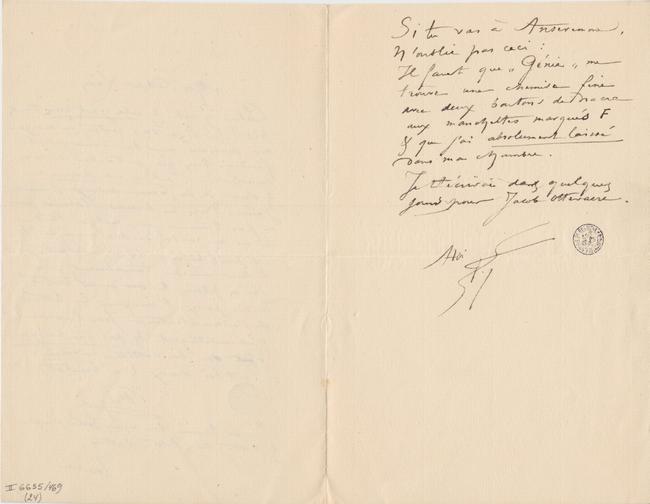 Si tu vas à Anseremme,
N'oublie pas ceci :
Il faut que „ Génie „ me
trouve une chemise fine
avec deux boutons de nacre
aux manchettes marqués F
& que j'ai absolument laissé
dans ma chambre.
Je t'écrirai dans quelques
jours pour Jacob
àtoi
II 6655/469
(24)